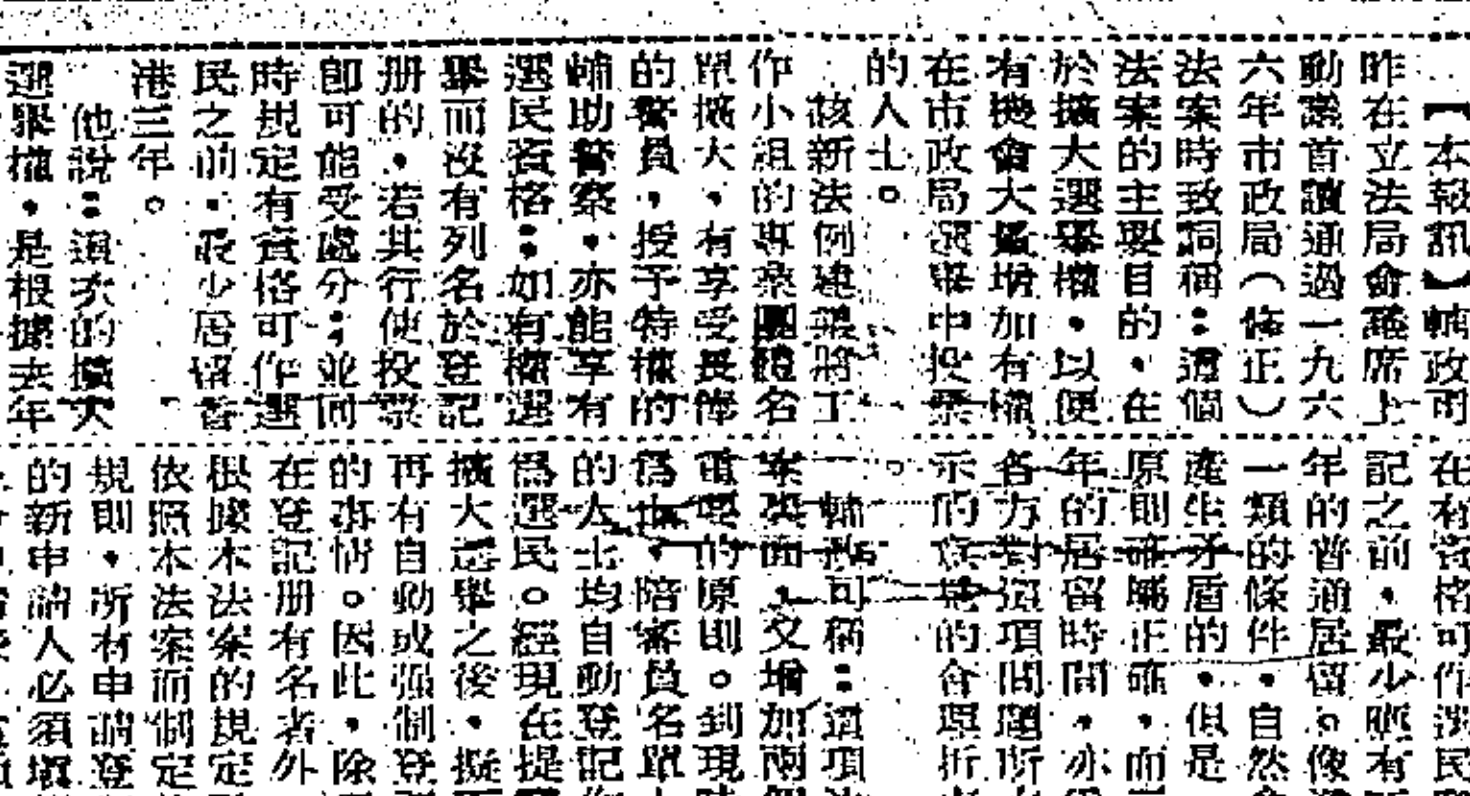 【本報訊】輔政司
昨在立法局會議席上
動議首讀通過一九六
六年市政局（修正）
法案時致詞稱：這個
法案的主要目的，在
於擴大選舉權，以便
有機會大量增加有權
在市政局選舉中投票
的人士。
該新法例建議將工
作小組的專業團體名
單擴大，有享受長俸
的警員，授予特權的
輔助警察，亦能享有
選民資格：如有權選
舉而沒有列名於登記
册的，若其行使投票
卽可能受處分；並同
時規定有資格可作選
民之前，最少居留香
港三年。
他說：這次的擴大
選舉權，是根據去年
在有資格可作選民
記之前，最少應有
年的普通居留。像
一類的條件，自然
產生矛盾的，但是
原則確屬正確，而
年的居留時間，亦
各方對這項問題所
示的意見的合理折
。
輔政司稱：這項
案裏面，又增加兩
重要的原則。到現
爲止，陪審員名單
的人士均自動登記
爲選民。經現在提
擴大選舉之後，擬
再有自動或强制登
的事情。因此，除
在登記册有名者外
根據本法案的規定
依照本法案而制定
規則，所有申請登
的新申請人必須填